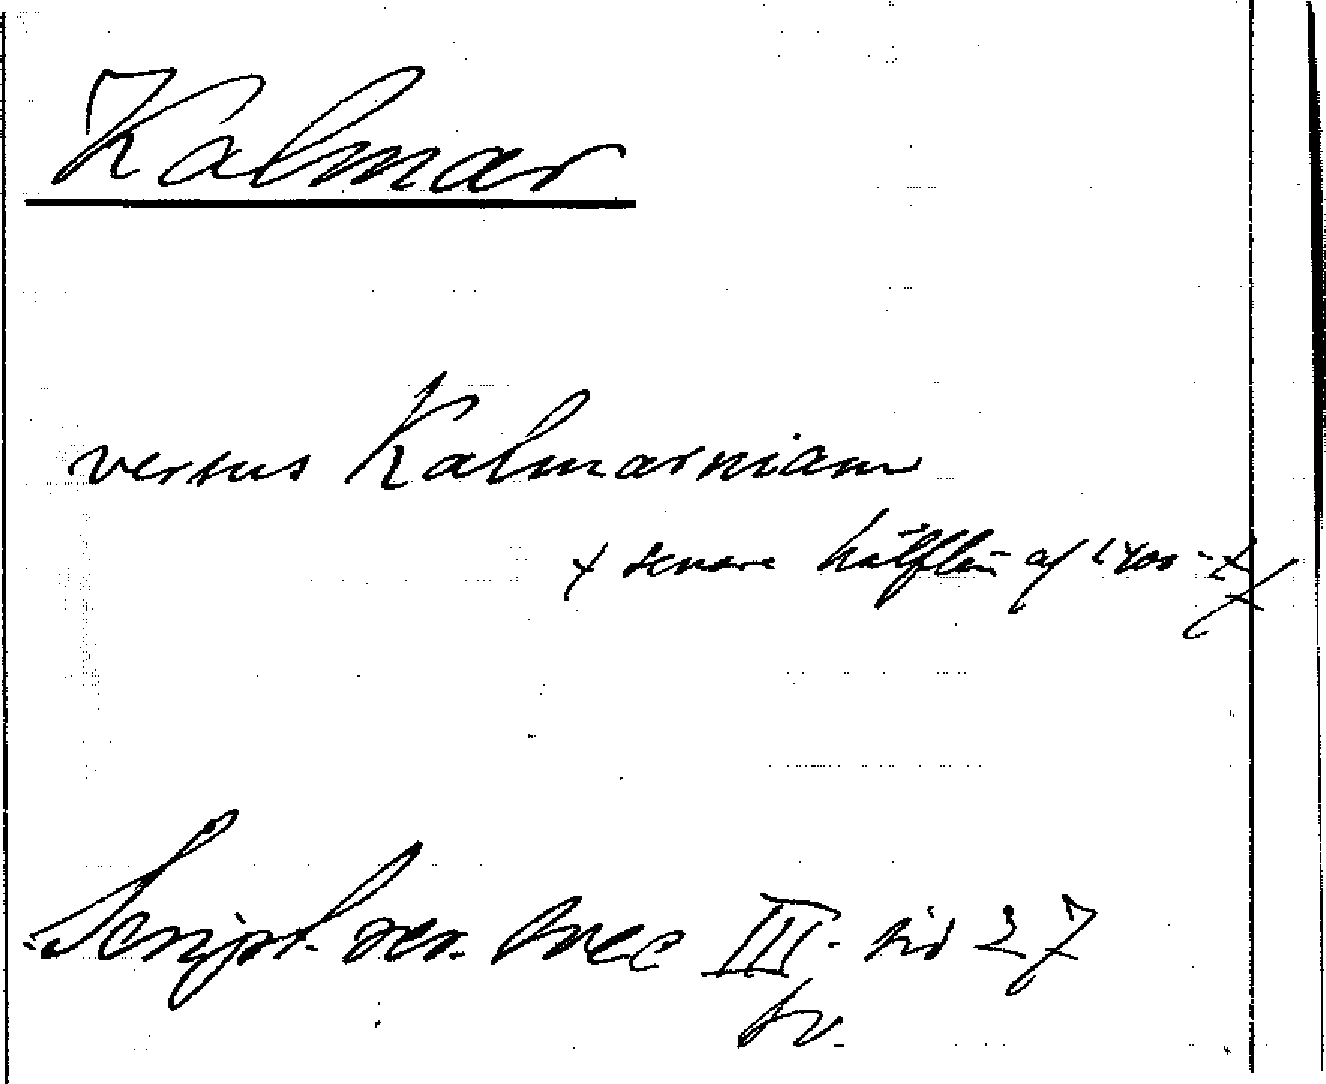 Kalmar
versus Kalmarniam
senare hälften af 1400-t
Script. rer. svec III. sid 27